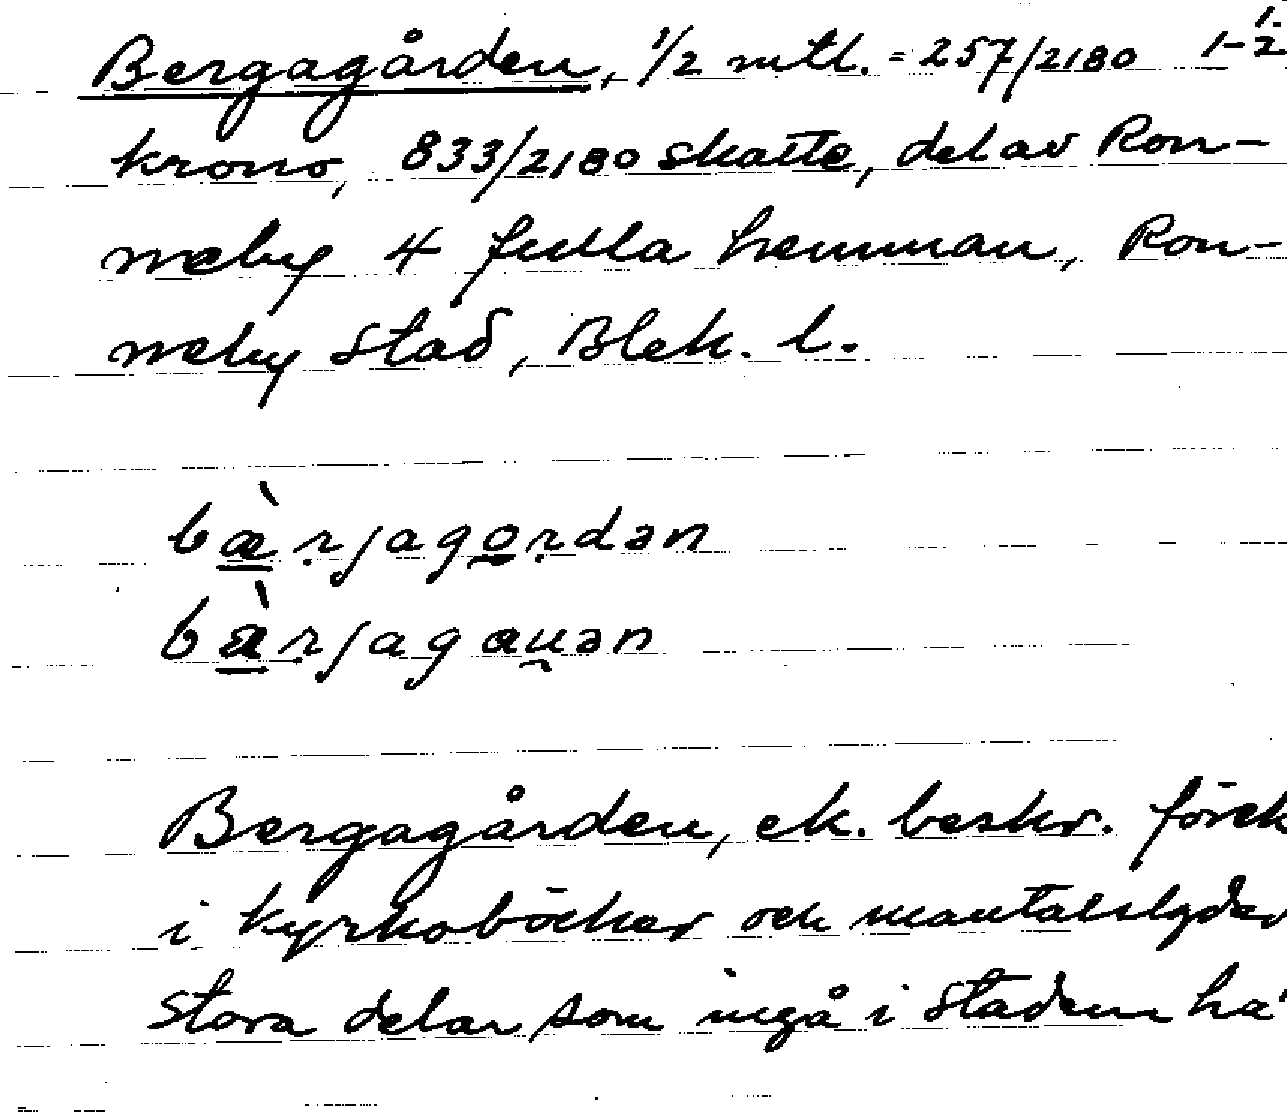 Bergagården, 1/2 mtl. = 257/2180 1-1/2
krono, 833/2180 skatte, del av Ron-
neby 4 fulla hemman, Ron-
neby stad, Blek. l.
bæ̀rjagordən
bæ̀rjagauən
Bergagården, ek. beskr. förek
i kyrkoböcker och mantalslgder
stora delar som ingå i staden ha